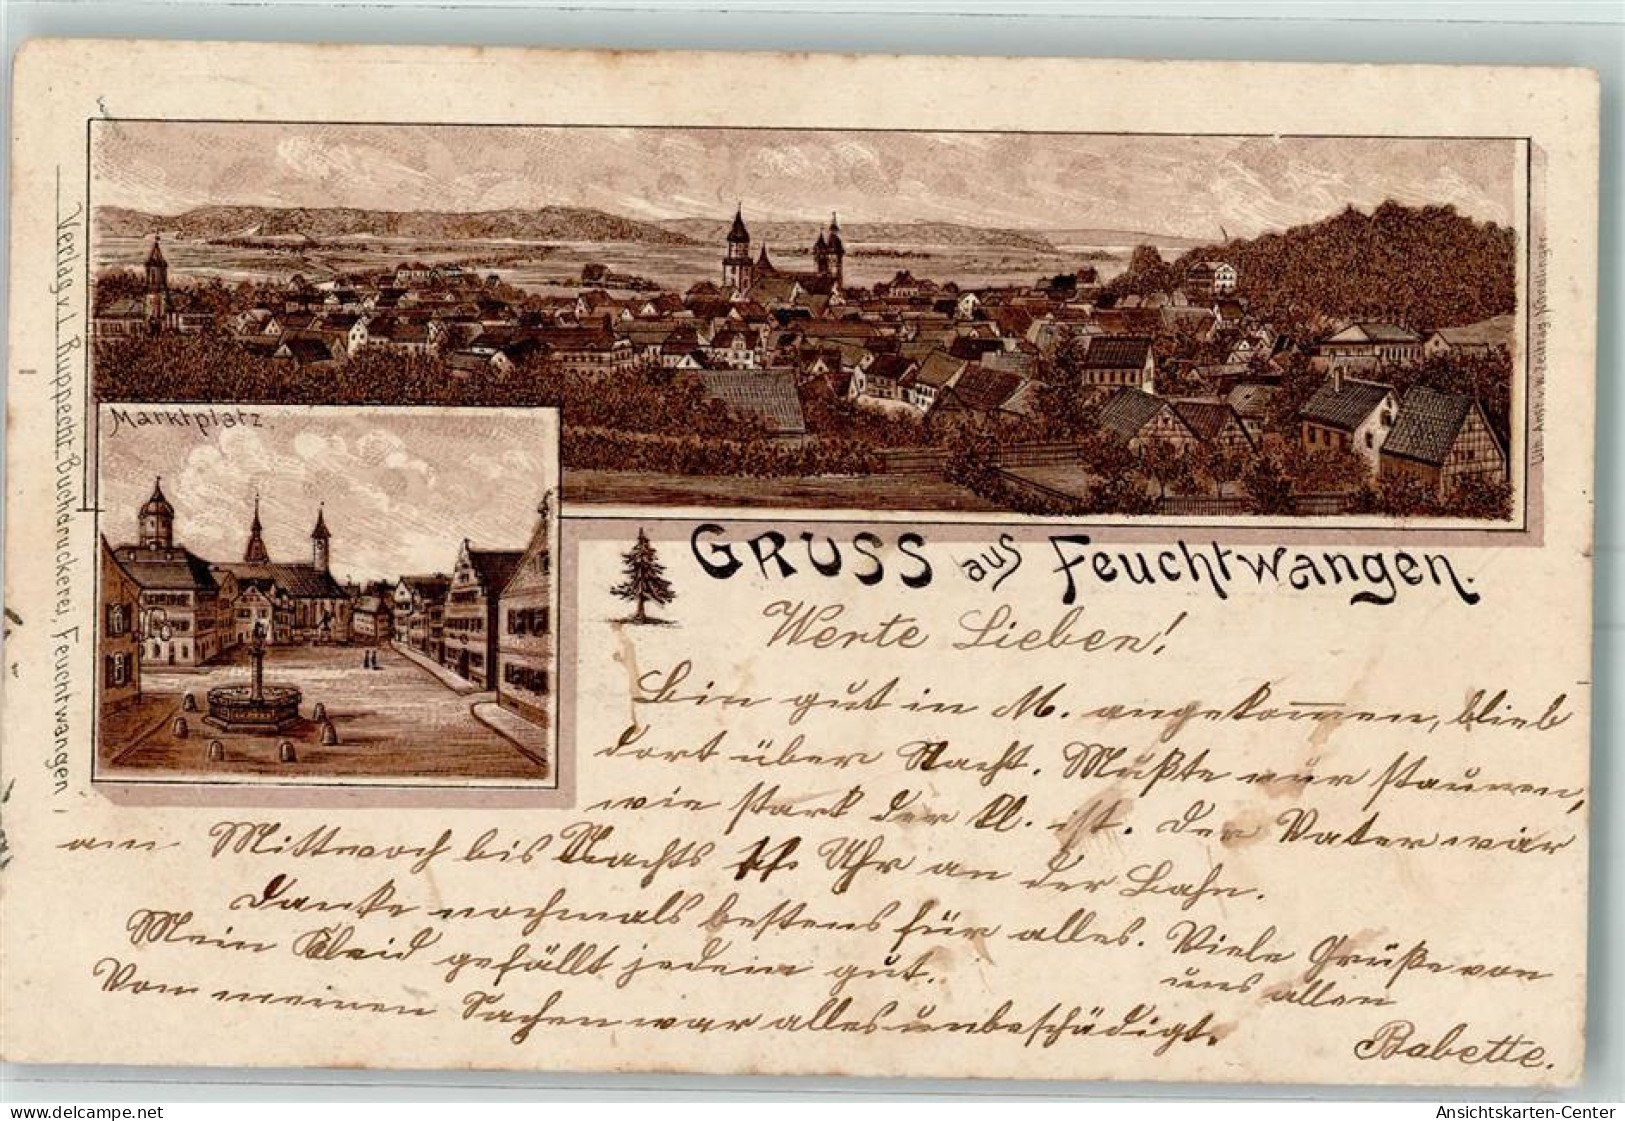 Verlag v. L. Rupprecht Buchdruckerei, Feuchtwangen.
Marktplatz.
GRUSS aus Feuchtwangen.
Werte Lieben!
Bin gut in M. angekom̅en, blieb
dort über Nacht. Mußte nur staunen,
wie stark der Kl. ist. Der Vater war
am Mittwoch bis Nachts 11 Uhr an der Bahn.
Danke nochmals bestens für alles. Viele Grüße von
uns allen
Mein Kleid gefällt jedem gut.
Vom meinen Sachen war alles unbeschädigt.
Babette.
Ansichtskarten-Center